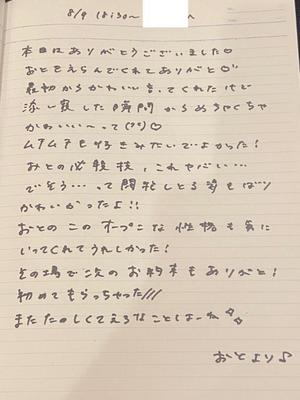 8/9 18:30〜
本日はありがとうございました♡
おとをえらんでくれてありがと♡"
最初からかわいいをってくれたけど
添い寝した瞬間からめちゃくちゃ
かわいい〜って(°°)♡
ムチムチも好きみたいでよかった!
おとの必殺技、これやばい…
でそう…って悶絶しとる姿もばり
かわいかったよ!!
おとのこのオープンな性格も気に
いってくれてうれしかった!
その場で次のお約束もありがと!
初めてもらっちゃった///
またたのしくてえろなことしよーね✧
おとより♪